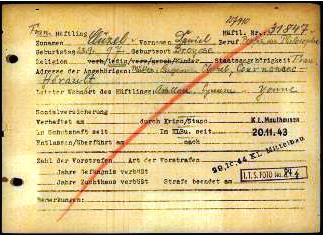 27910
Fran. Häftling Häftl. Nr. 31847
Zunamen Clüzel Vornamen Daniel Beruf
Geburtstag 23.9.97 Geburtsort
Religion verh/ledig/verw/gesch/Kinder Staatsangehörigkeit Fran.
Adresse der Angehörigen: Cournonsec
Hérault
Letzter Wohnort des Häftlings: Yonne
Sozialversicherung
Verhaftet am durch Kripo/Stapo K.L. Mauthausen
In Schutzhaft seit Im KLBu. seit 20.11.43
Entlassen/überführt am nach
Zahl der Vorstrafen Art der Vorstrafen
29.10.44 KL Mittelbau
Jahre Gefängnis verbüßt
Jahre Zuchthaus verbüßt Strafe beendet am
I.T.S. FOTO No.
Bemerkungen: